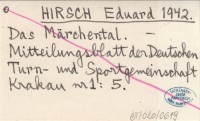 HIRSCH Eduard 1942.
Das Märchental. —
Mitteilungsblatt der Deutschen
Turn- und Sportgemeinschaft
Krakau nr 1: 5.